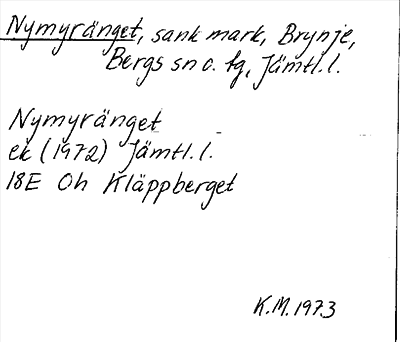 Nymyränget, sank mark, Brynje,
Bergs sn o. tg, Jämtl. l.
Nymyränget
ek (1972) Jämtl. l.
18E Oh Kläppberget
K.M. 1973